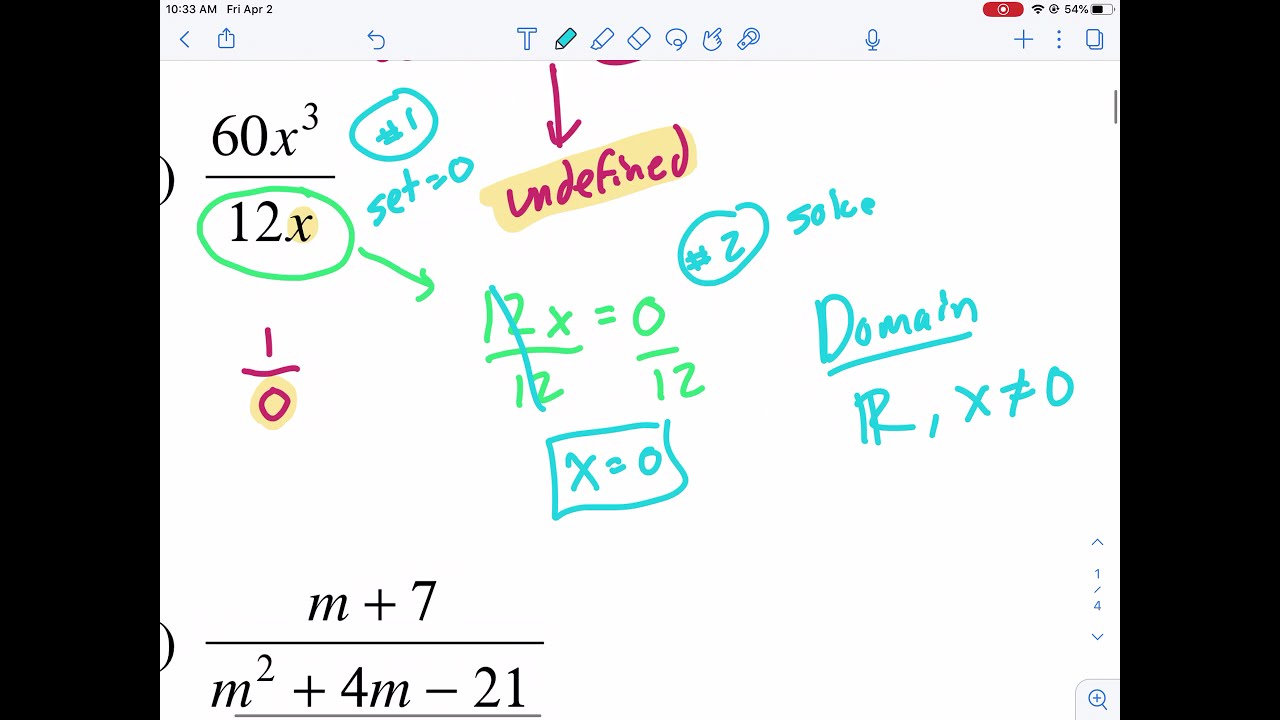 10:33 AM Fri Apr 2
54%
60x³
12x
#1
set=0
undefined
#2 solve
12x = 0
12 12
x=0
1
0
Domain
ℝ, x≠0
1
/
4
)
)
m + 7
m² + 4m − 21